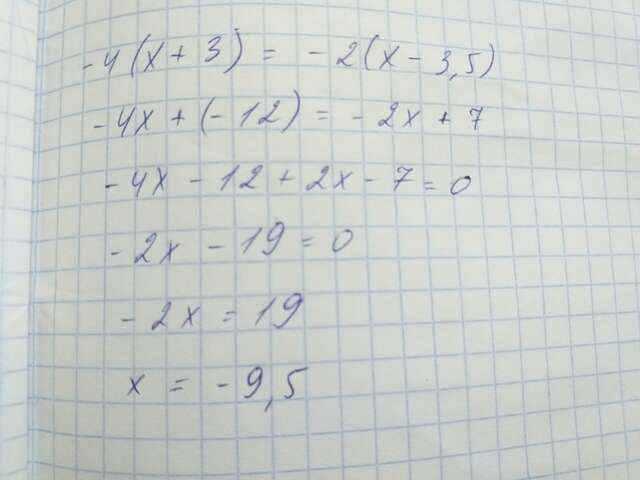 -4(x + 3) = -2(x - 3,5)
-4x + (-12) = -2x + 7
-4x - 12 + 2x - 7 = 0
-2x - 19 = 0
-2x = 19
x = -9,5